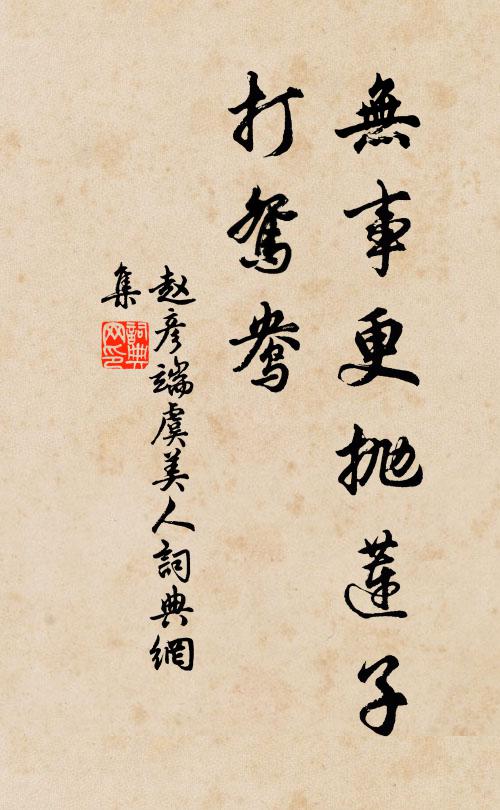 無事更抛蓮子
打鴛鴦
赵彦端虞美人詞典網
集
詞典
网印